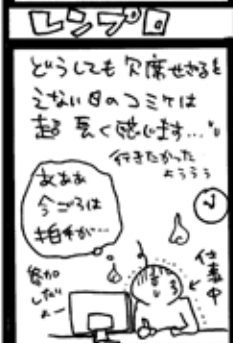 レンプロ
どうしても欠席せざるを
えない日のコミケは
超長く感じます…
行きたかった
よううう
あああ
今ごろは
拍手が…
仕事中
参加
したい
よー